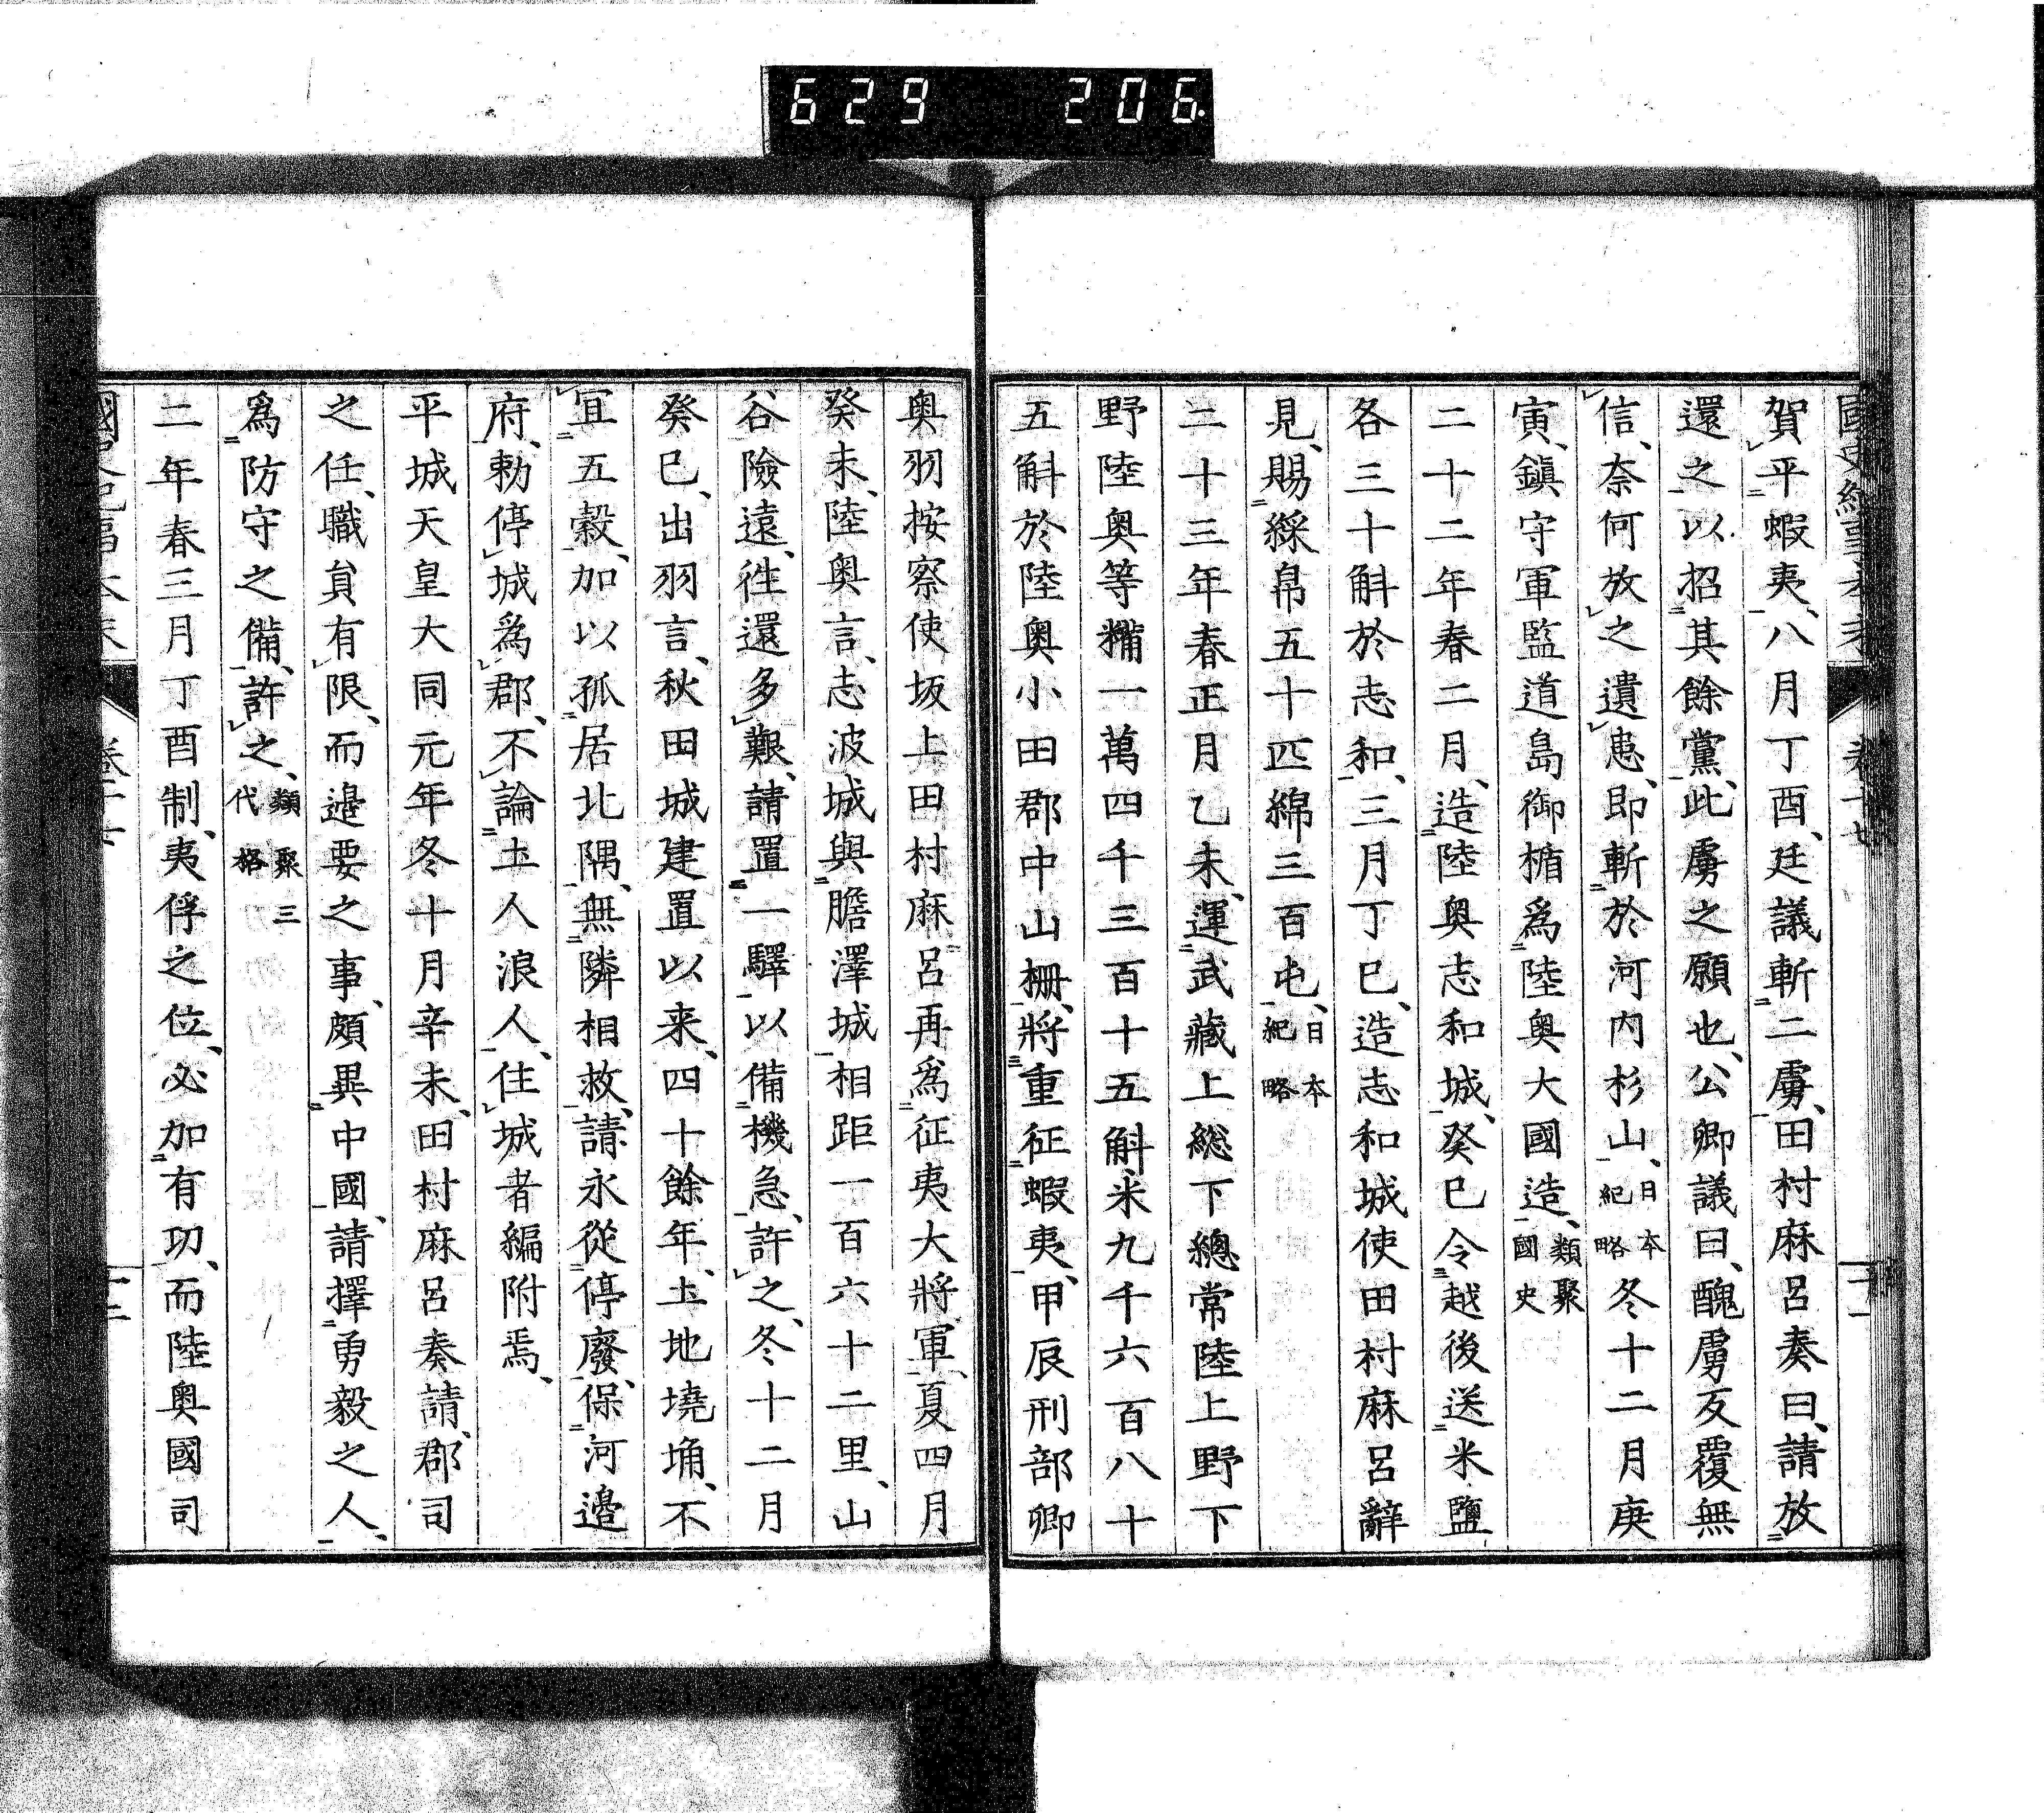 629 206
賀平蝦夷、八月丁酉、廷議斬二虜、田村麻呂奏曰、請放
還之以招其餘黨、此虜之願也、公卿議曰、醜虜反覆無
信、奈何放之遺患、即斬於河内杉山、日本紀略冬十二月庚
寅、鎮守軍監道島御楯爲陸奥大國造、類聚國史
二十二年春二月、造陸奥志和城、癸巳令越後送米鹽
各三十斛於志和、三月丁巳、造志和城使田村麻呂辭
見、賜綵帛五十匹綿三百屯、日本紀略
二十三年春正月乙未、運武藏上総下總常陸上野下
野陸奥等糒一萬四千三百十五斛、米九千六百八十
五斛於陸奥小田郡中山柵、將重征蝦夷、甲辰刑部卿
奥羽按察使坂上田村麻呂再爲征夷大將軍、夏四月
癸未、陸奥言、志波城與膽澤城相距一百六十二里、山
谷險遠、徃還多艱、請置一驛以備機急、許之、冬十二月
癸巳、出羽言、秋田城建置以来、四十餘年、土地墝埆、不
宜五穀、加以孤居北隅、無隣相救、請永從停廢、保河邉
府、勅停城爲郡、不論土人浪人、住城者編附焉、
平城天皇大同元年冬十月辛未、田村麻呂奏請、郡司
之任、職員有限、而邉要之事、頗異中國、請擇勇毅之人、
爲防守之備、許之、類聚三代格
二年春三月丁酉制、夷俘之位、必加有功、而陸奥國司